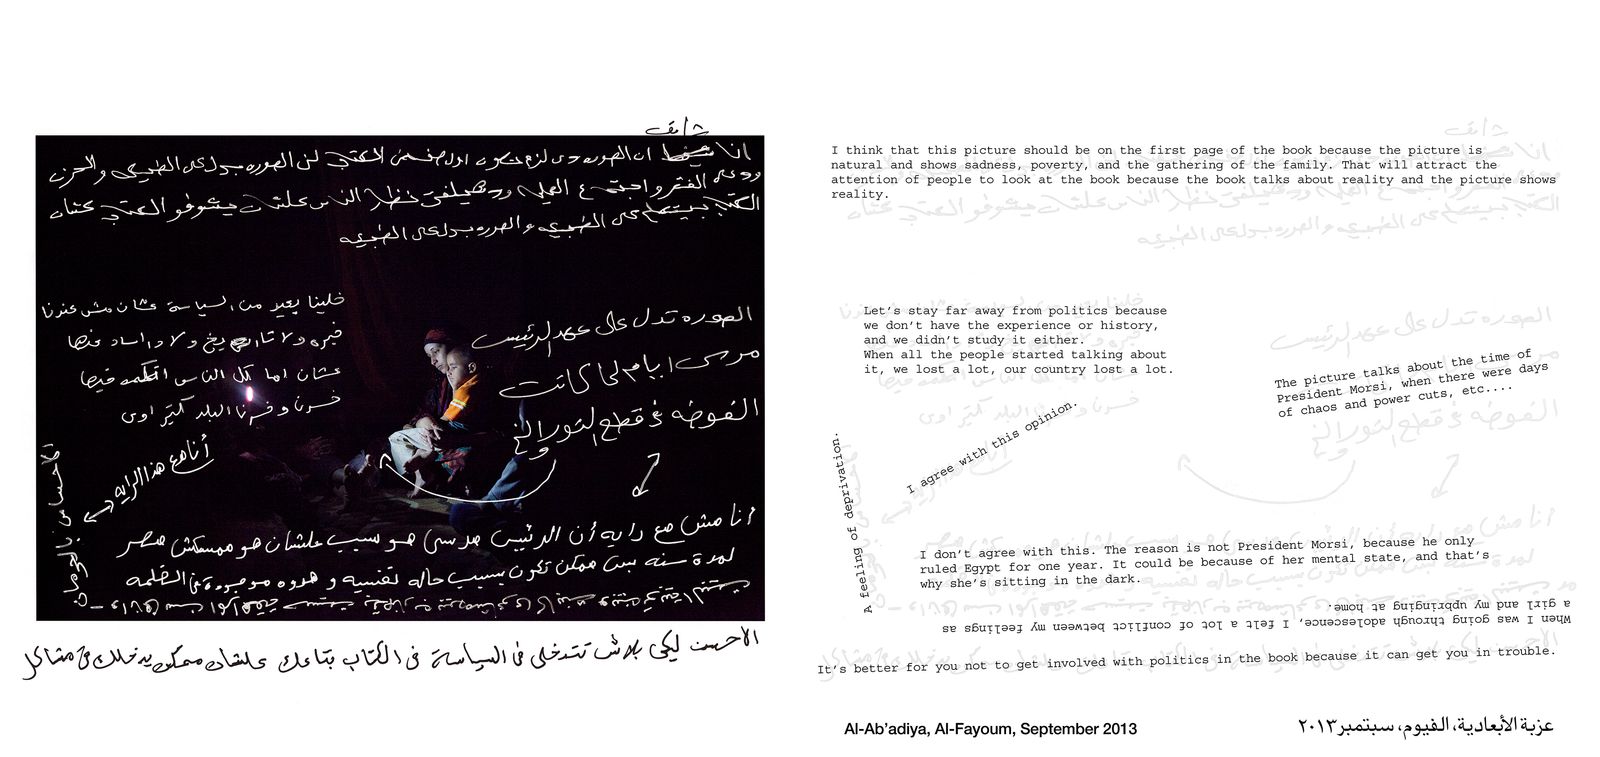 شايف
انا ان الصوره دى لزم تكون اول صفحه فى الكتاب لن الصوره بدل على الطبيعى و الحزن
الفقر و اجتماع العيله وده هيلفت نظر الناس علشان يشوفو الكتاب عشان
الكتاب بيتكلم على الطبيعه و الصوره بدل على الطبيعه
خلينا بعيد من السياسة عشان مش عندنا
خبره ولا تاريخ ولا دارسنا فيها
عشان اما كل الناس اتكلمه فيها
خسرنا و خسرنا البلد كتير اوى
الصوره تدل على عهد الرئيس
مرسى ايام لما كانت
الفوضه فى قطع النور والخ
أنا مع هذا الرايه
الاحساس بالحرمان
أنا مش مع رايه أن الرئيس مرسى هو سبب علشان هو ممسكش مصر
لمدة سنه بس ممكن تكون بسبب حاله نفسيه و هوه موجودة فى الضلمه
الاحسن ليكى بلاش تتدخلى فى السياسة فى الكتاب بتاعك علشان ممكن يدخلك فى مشاكل
I think that this picture should be on the first page of the book because the picture is
natural and shows sadness, poverty, and the gathering of the family. That will attract the
attention of people to look at the book because the book talks about reality and the picture shows
reality.
Let's stay far away from politics because
we don't have the experience or history,
and we didn't study it either.
When all the people started talking about
it, we lost a lot, our country lost a lot.
The picture talks about the time of
President Morsi, when there were days
of chaos and power cuts, etc....
I agree with this opinion.
A feeling of deprivation.
I don't agree with this. The reason is not President Morsi, because he only
ruled Egypt for one year. It could be because of her mental state, and that's
why she's sitting in the dark.
When I was going through adolescence, I felt a lot of conflict between my feelings as
a girl and my upbringing at home.
It's better for you not to get involved with politics in the book because it can get you in trouble.
Al-Ab'adiya, Al-Fayoum, September 2013
عزبة الأبعادية، الفيوم، سبتمبر ٢٠١٣